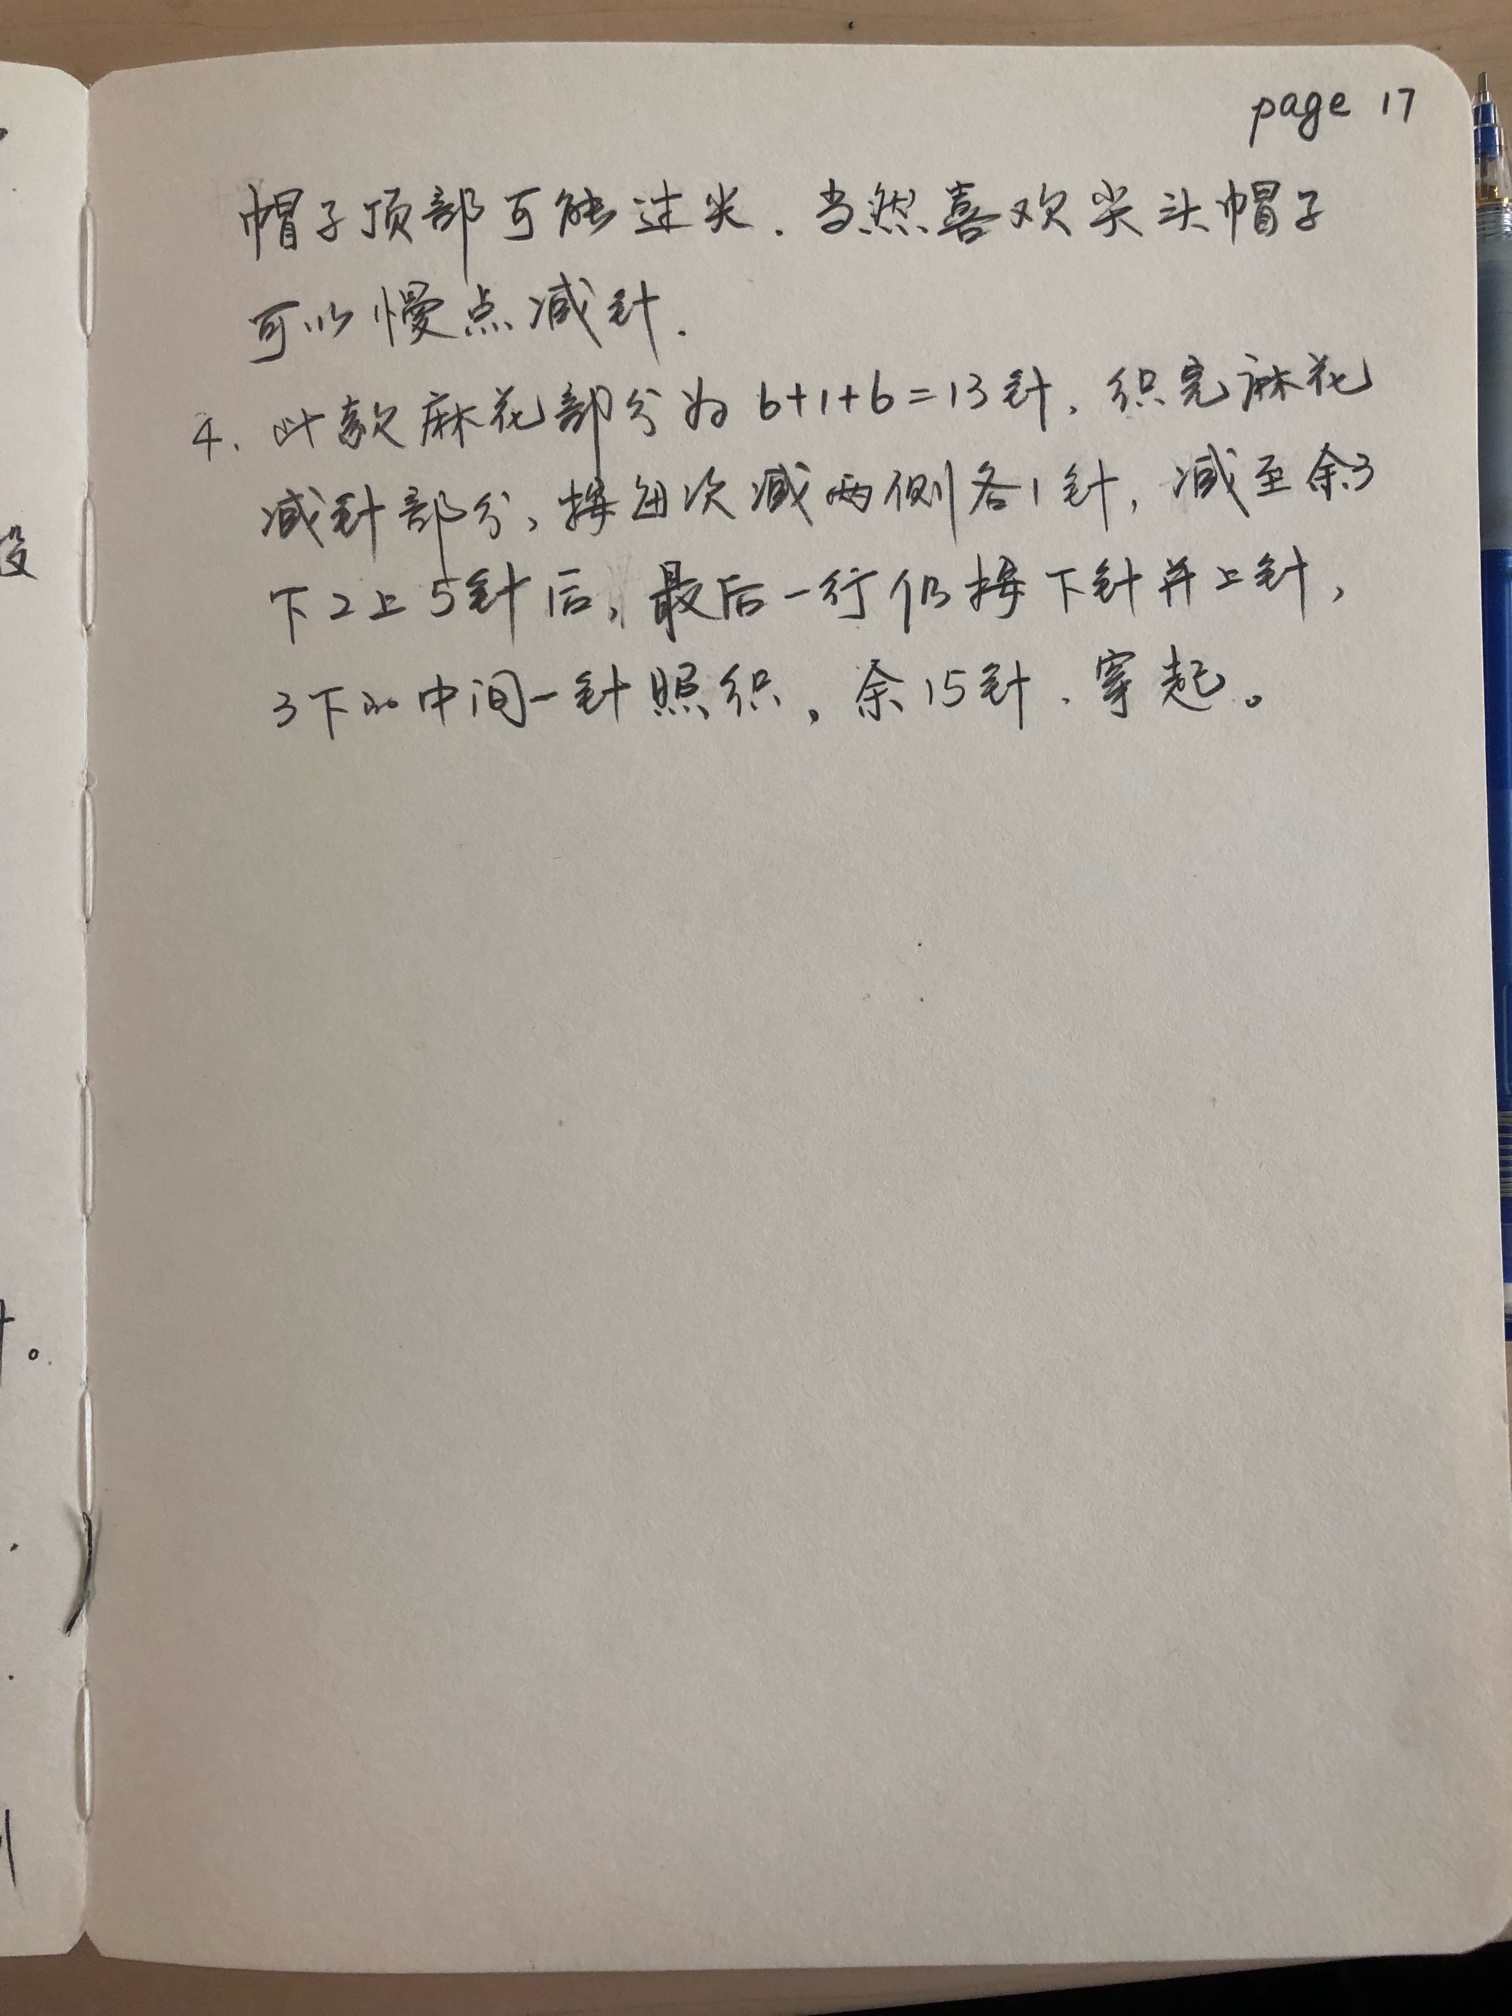 page 17
帽子顶部可能过尖．当然喜欢尖头帽子
可以慢点减针．
4．此款麻花部分为6+1+6=13针，织完麻花
减针部分，按每次减两侧各1针，减至余3
下2上5针后，最后一行仍按下针并上针，
3下的中间一针照织，余15针．穿起。
没